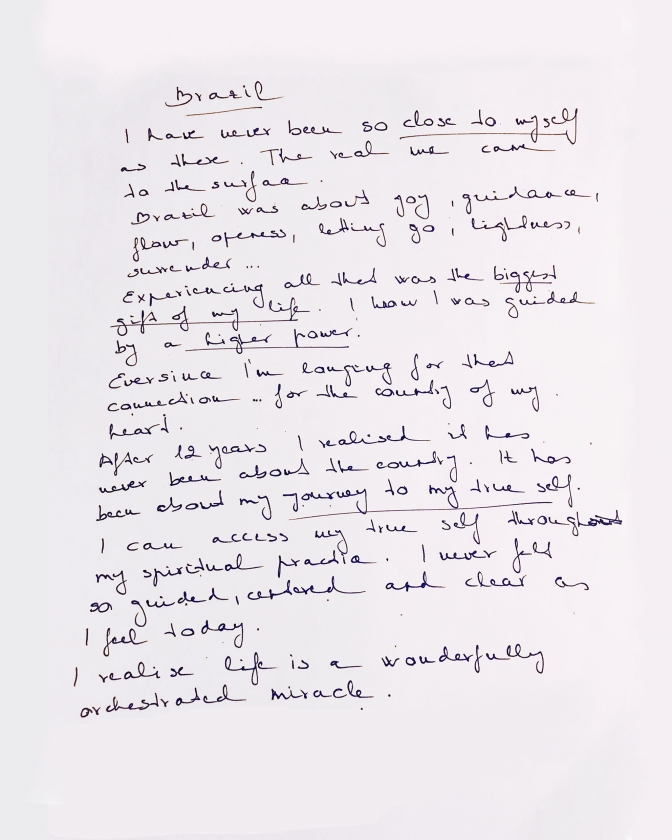 Brazil
I have never been so close to myself
as there. The real me came
to the surface.
Brazil was about joy, guidance,
flow, openess, letting go, lightness,
surrender ...
Experiencing all that was the biggest
gift of my life. I know I was guided
by a higher power.
Eversince I'm longing for that
connection ... for the country of my
heart.
After 12 years I realised it has
never been about the country. It has
been about my journey to my true self.
I can access my true self through
my spiritual practice. I never felt
so guided, centered and clear as
I feel today.
I realise life is a wonderfully
orchestrated miracle.